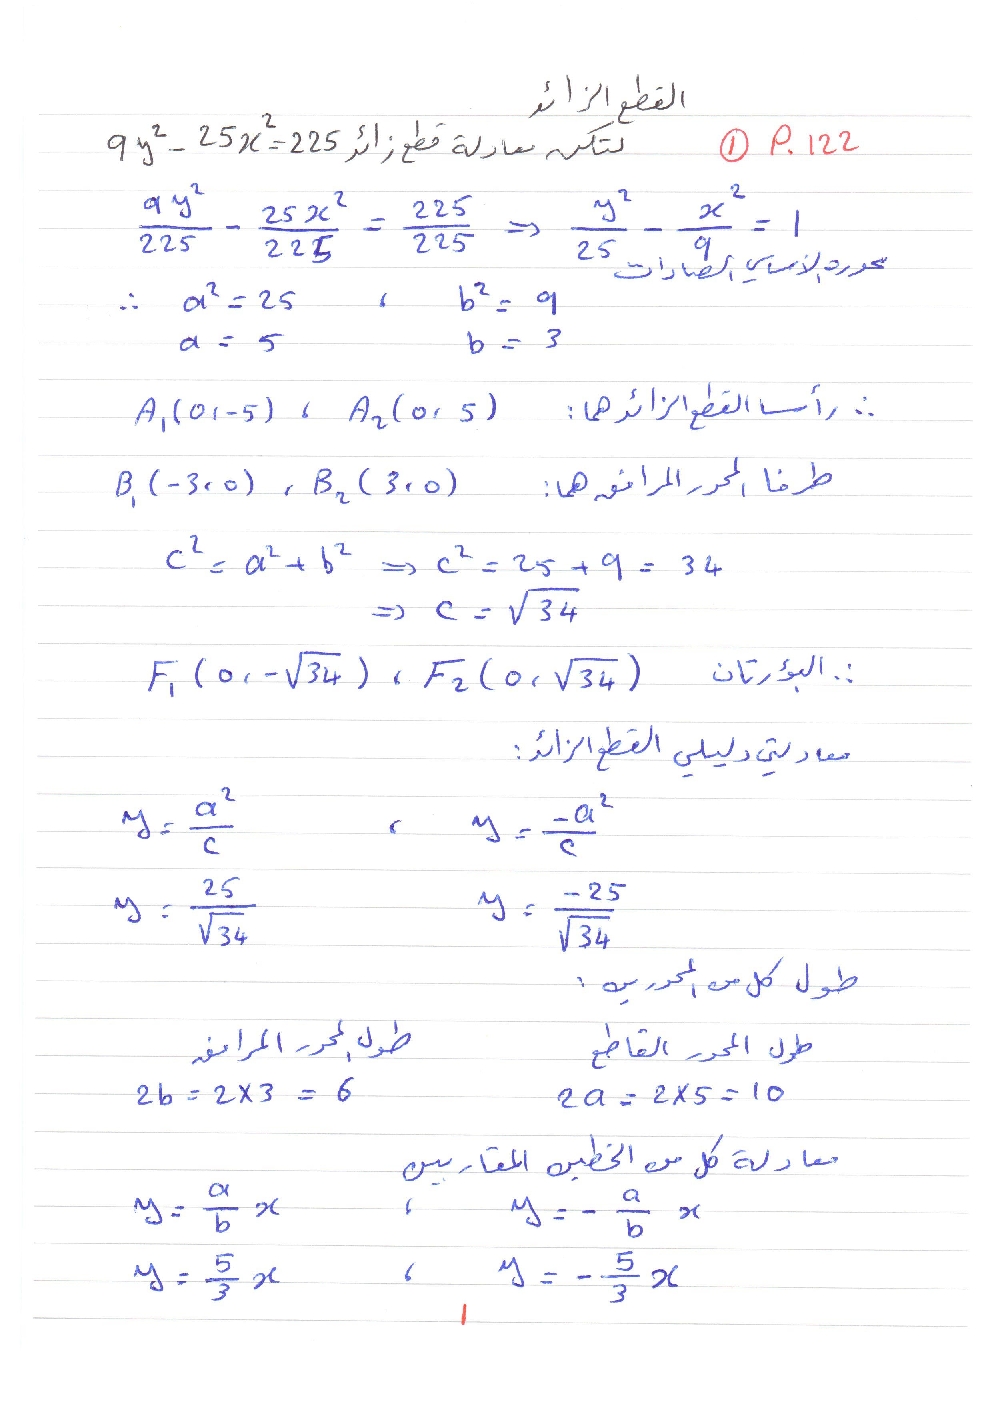 القطع الزائد
① P. 122 لتكن معادلة قطع زائد 9y² - 25x² = 225
9y²/225 - 25x²/225 = 225/225 ⇒ y²/25 - x²/9 = 1
محوره الأساسي الصادات
∴ a² = 25 ، b² = 9
a = 5 b = 3
∴ رأسا القطع الزائد هما: A₁(0، -5) ، A₂(0، 5)
طرفا المحور المرافق هما: B₁(-3، 0) ، B₂(3، 0)
c² = a² + b² ⇒ c² = 25 + 9 = 34
⇒ c = √34
∴ البؤرتان F₁(0، -√34) ، F₂(0، √34)
معادلتي دليلي القطع الزائد:
y = a²/c ، y = -a²/c
y = 25/√34 y = -25/√34
طول كل من المحورين:
طول المحور القاطع طول المحور المرافق
2a = 2×5 = 10 2b = 2×3 = 6
معادلة كل من الخطين المقاربين
y = a/b x ، y = - a/b x
y = 5/3 x ، y = - 5/3 x
1